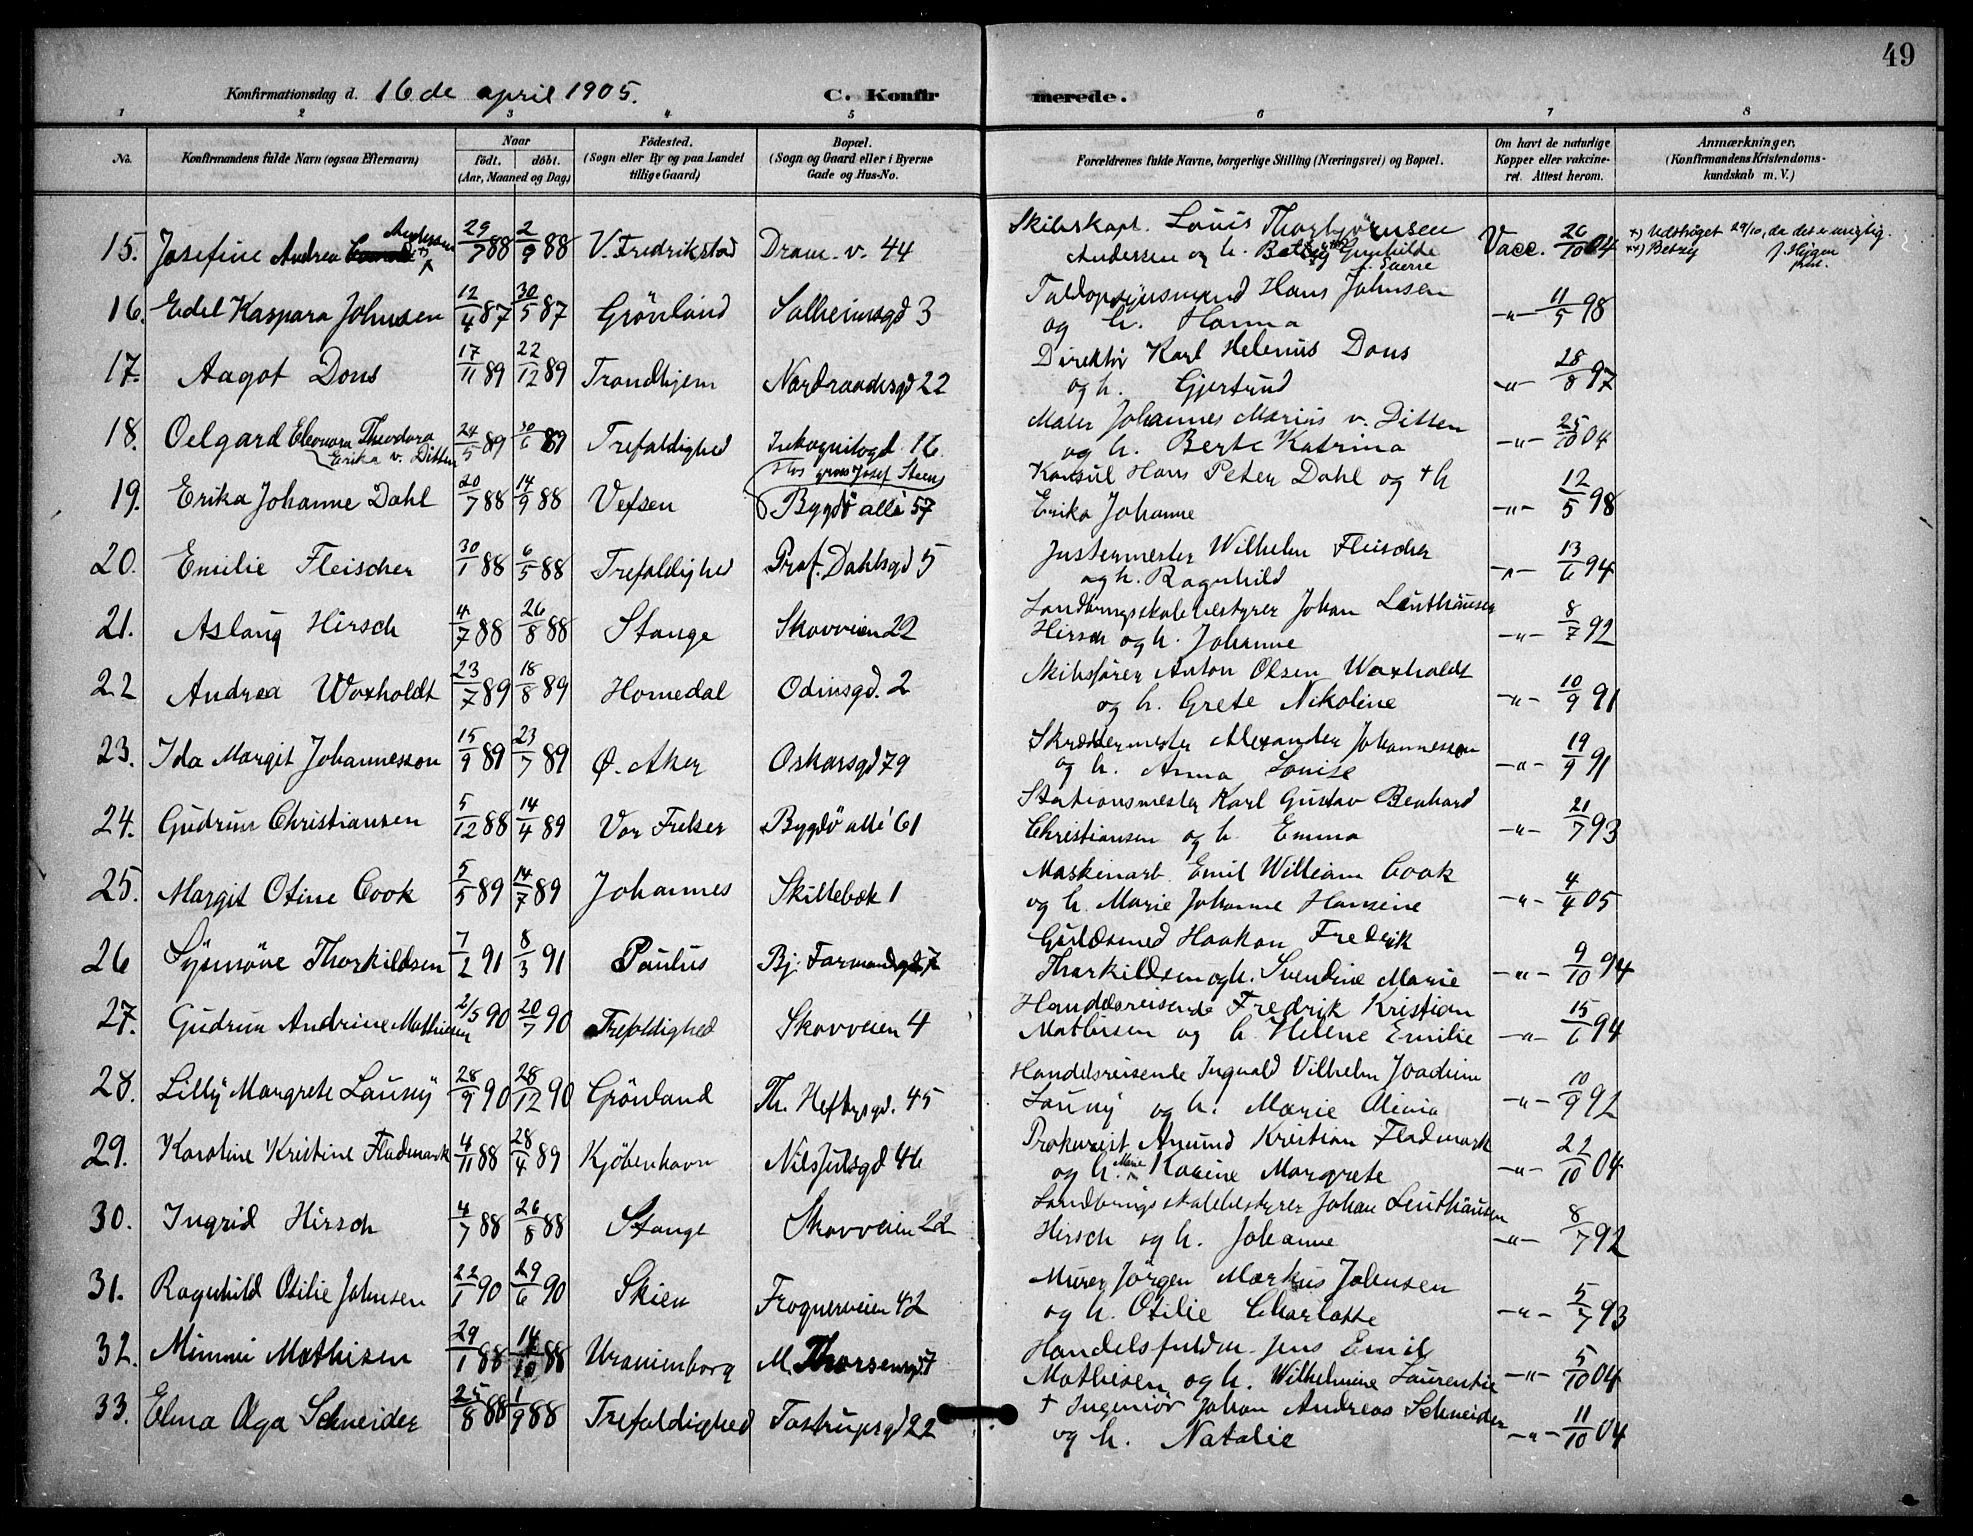 49
Konfirmationsdag d. 16de april 1905.
C. Konfirmerede.
1 2 3 4 5 6 7 8
No.
Konfirmandens fulde Navn (ogsaa Efternavn)
Naar
født. døbt.
(Aar, Maaned og Dag)
Fødested.
(Sogn eller By og paa Landet
tillige Gaard)
Bopæl.
(Sogn og Gaard eller i Byerne
Gade og Hus-No.
Forældrenes fulde Navne, borgerlige Stilling (Næringsvei) og Bopæl.
Om havt de naturlige
Kopper eller vakcine-
ret. Attest herom.
Anmærkninger.
(Konfirmandens Kristendoms-
kundskab m. V.)
15. Josefine Andrea Andersen 29/7 88 2/9 88 V. Fredrikstad Dram. v. 44 Skibskapt. Louis Thorbjörnsen
Andersen og h. Betsy Gunhilde Vacc. 26/10 04
x) Udstrøget 29/10, da det er urigtig.
xx) Betzy
16. Edel Kaspara Johnsen 12/4 87 30/5 87 Grönland Solheimsgd 3 Toldopsynsmand Hans Johnsen
og h. Hanna -"- 11/5 98
17. Aagot Dons 17/11 89 22/12 89 Trondhjem Nordraaksgd 22 Direktör Karl Helenius Dons
og h. Gjertrud -"- 28/8 97
18. Oelgard Eleonora Theodora
Erika v. Ditten 24/5 89 30/6 89 Trefoldighed Inkognitogd. 16 Maler Johannes Marius v. Ditten
og h. Berte Katrina -"- 25/10 04
19. Erika Johanne Dahl 20/7 88 14/9 88 Vefsen Hos gross Josef Steen
Bygdö alle 57 Konsul Hans Peter Dahl og + h
Erika Johanne -"- 12/5 98
20. Emilie Fleischer 30/1 88 6/5 88 Trefoldighed Prof. Dahlsgd 5 Justermester Wilhelm Fleischer
og h. Ragnhild -"- 13/6 94
21. Aslaug Hirsch 4/7 88 26/8 88 Stange Skovveien 22 Landbrugsskolebestyrer Johan Leuthäusen
Hirsch og h. Johanne -"- 8/7 92
22 Andrea Woxholdt 23/7 89 18/8 89 Homedal Odinsgd. 2 Skibsfører Anton Olsen Woxholdt
og h. Grete Nikoline -"- 10/9 91
23. Ida Margit Johannesson 15/9 89 23/7 89 Ø. Aker Oskarsgd 79 Skræddermester Alexander Johannesson
og h. Anna Louise -"- 19/9 91
24. Gudrun Christiansen 5/12 88 14/4 89 Vor Frelser Bygdö alle 61 Stationsmester Karl Gustav Bernhard
Christiansen og h. Emma -"- 21/7 93
25. Margit Otine Cook 5/5 89 14/7 89 Johannes Skillebæk 1 Maskinarb. Emil William Cook
og h. Marie Johanne Hansine -"- 4/4 05
26 Synnöve Thorkildsen 7/2 91 8/3 91 Paulus Bj. Farmandsgd 7 Guldsmed Haakon Fredrik
Thorkildsen og h. Svendine Marie -"- 9/10 94
27. Gudrun Andrine Mathiesen 2/5 90 20/7 90 Trefoldighed Skovveien 4 Handelsreisende Fredrik Kristian
Mathisen og h. Helene Emilie -"- 15/6 94
28. Lilly Margrete Launy 28/9 90 28/12 90 Grönland Th. Heftyesgd. 45 Handelsreisende Ingvald Vilhelm Joachim
Launy og h. Marie Olivia -"- 10/9 92
29. Karoline Kristine Fladmark 4/11 88 28/4 89 Kjöbenhavn Nils Julsgd 46 Prokurist Amund Kristian Fladmark
og h. Marie Kaaine Margrete -"- 22/10 04
30. Ingrid Hirsch 4/7 88 26/8 88 Stange Skovveien 22 Landbrugsskolebestyrer Johan Leuthäusen
Hirsch og h. Johanne -"- 8/7 92
31. Ragnhild Otilie Johnsen 22/1 90 29/6 90 Skien Frognerveien 42 Murer Jörgen Markus Johnsen
og h. Otilie Charlotte -"- 5/7 93
32. Mimmi Mathisen 29/1 88 14/10 88 Uranienborg M. Thorsensgd 7 Handelsfuldm. Jens Emil
Mathiesen og h. Wilhelmine Laurentie -"- 5/10 04
33. Elma Olga Schneider 25/8 88 1/9 88 Trefoldighed Tostrupsgd 22 + Ingeniör Johan Andreas Schneider
og h. Natalie -"- 11/10 04